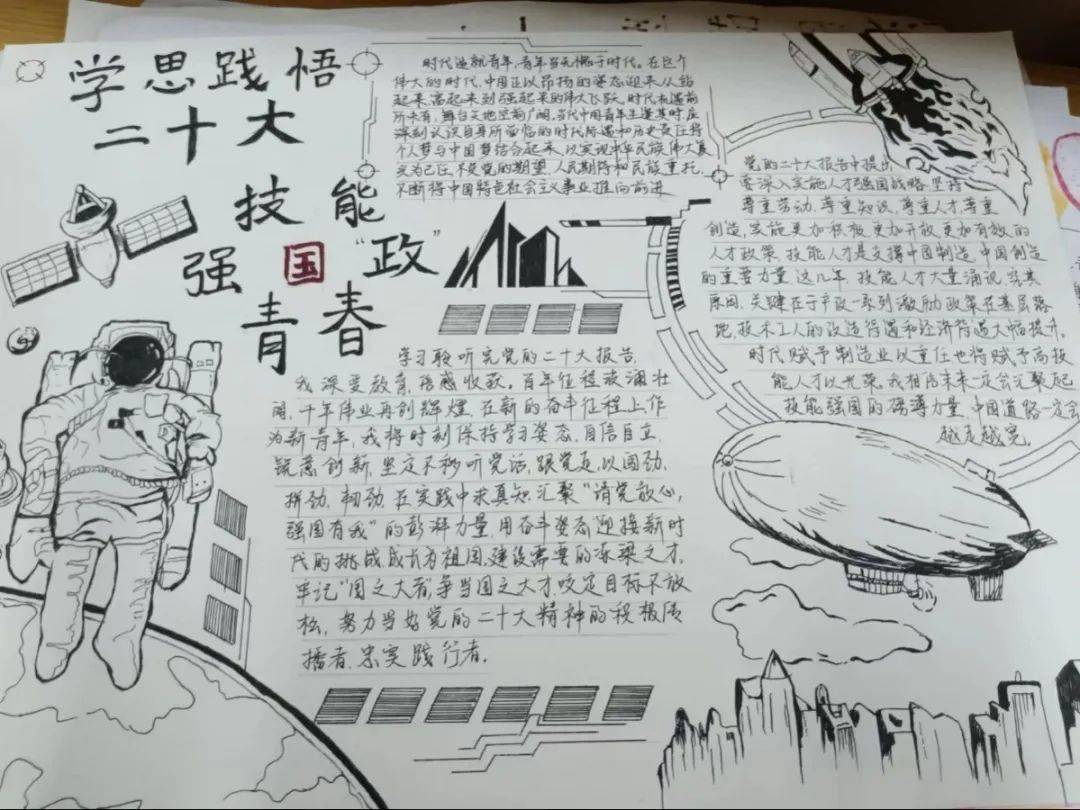 学思践悟
二十大
技能
强国"政"
青春
时代造就青年,青年当无愧于时代。在这个
伟大的时代,中国正以昂扬的姿态迎来从站
起来、富起来到强起来的伟大飞跃。时代机遇前
所未有,舞台天地空前广阔,当代中国青年生逢其时,应
深刻认识自身所面临的时代际遇和历史责任,将
个人梦与中国梦结合起来,以实现中华民族伟大复
兴为己任,不负党的期望、人民期待和民族重托,
不断将中国特色社会主义事业推向前进
党的二十大报告中提出
要深入实施人才强国战略,坚持
尊重劳动、尊重知识、尊重人才、尊重
创造,实施更加积极、更加开放、更加有效的
人才政策。技能人才是支撑中国制造、中国创造
的重要力量。这几年,技能人才大量涌现,究其
原因,关键在于一系列激励政策在基层落
地,技术工人的政治待遇和经济待遇大幅提升。
时代赋予制造业以重任,也将赋予高技
能人才以光荣,我相信未来一定会汇聚起
技能强国的磅礴力量,中国道路一定会
越走越宽。
学习聆听完党的二十大报告,
我深受教育,倍感收获。百年征程波澜壮
阔,千年伟业再创辉煌。在新的奋斗征程上,作
为新青年,我将时刻保持学习姿态,自信自立、
锐意创新,坚定不移听党话、跟党走,以闯劲、
拼劲、韧劲,在实践中求真知,汇聚"请党放心,
强国有我"的澎湃力量,用奋斗姿态迎接新时
代的挑战,成长为祖国建设需要的栋梁之才,
牢记"国之大者",争当国之大才,咬定目标不放
松,努力当好党的二十大精神的积极传
播者、忠实践行者。